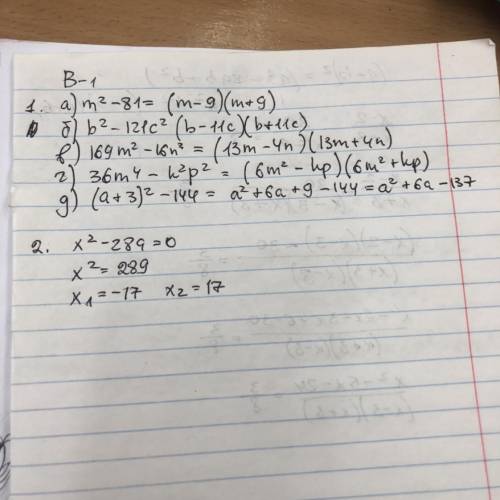 В-1
1. а) m² - 81 = (m-9)(m+9)
б) b² - 121c² (b-11c)(b+11c)
в) 169m² - 16n² = (13m-4n)(13m+4n)
г) 36m⁴ - k²p² = (6m² - kp)(6m² + kp)
д) (a+3)² - 144 = a² + 6a + 9 - 144 = a² + 6a - 137
2. x² - 289 = 0
x² = 289
x₁ = -17 x₂ = 17